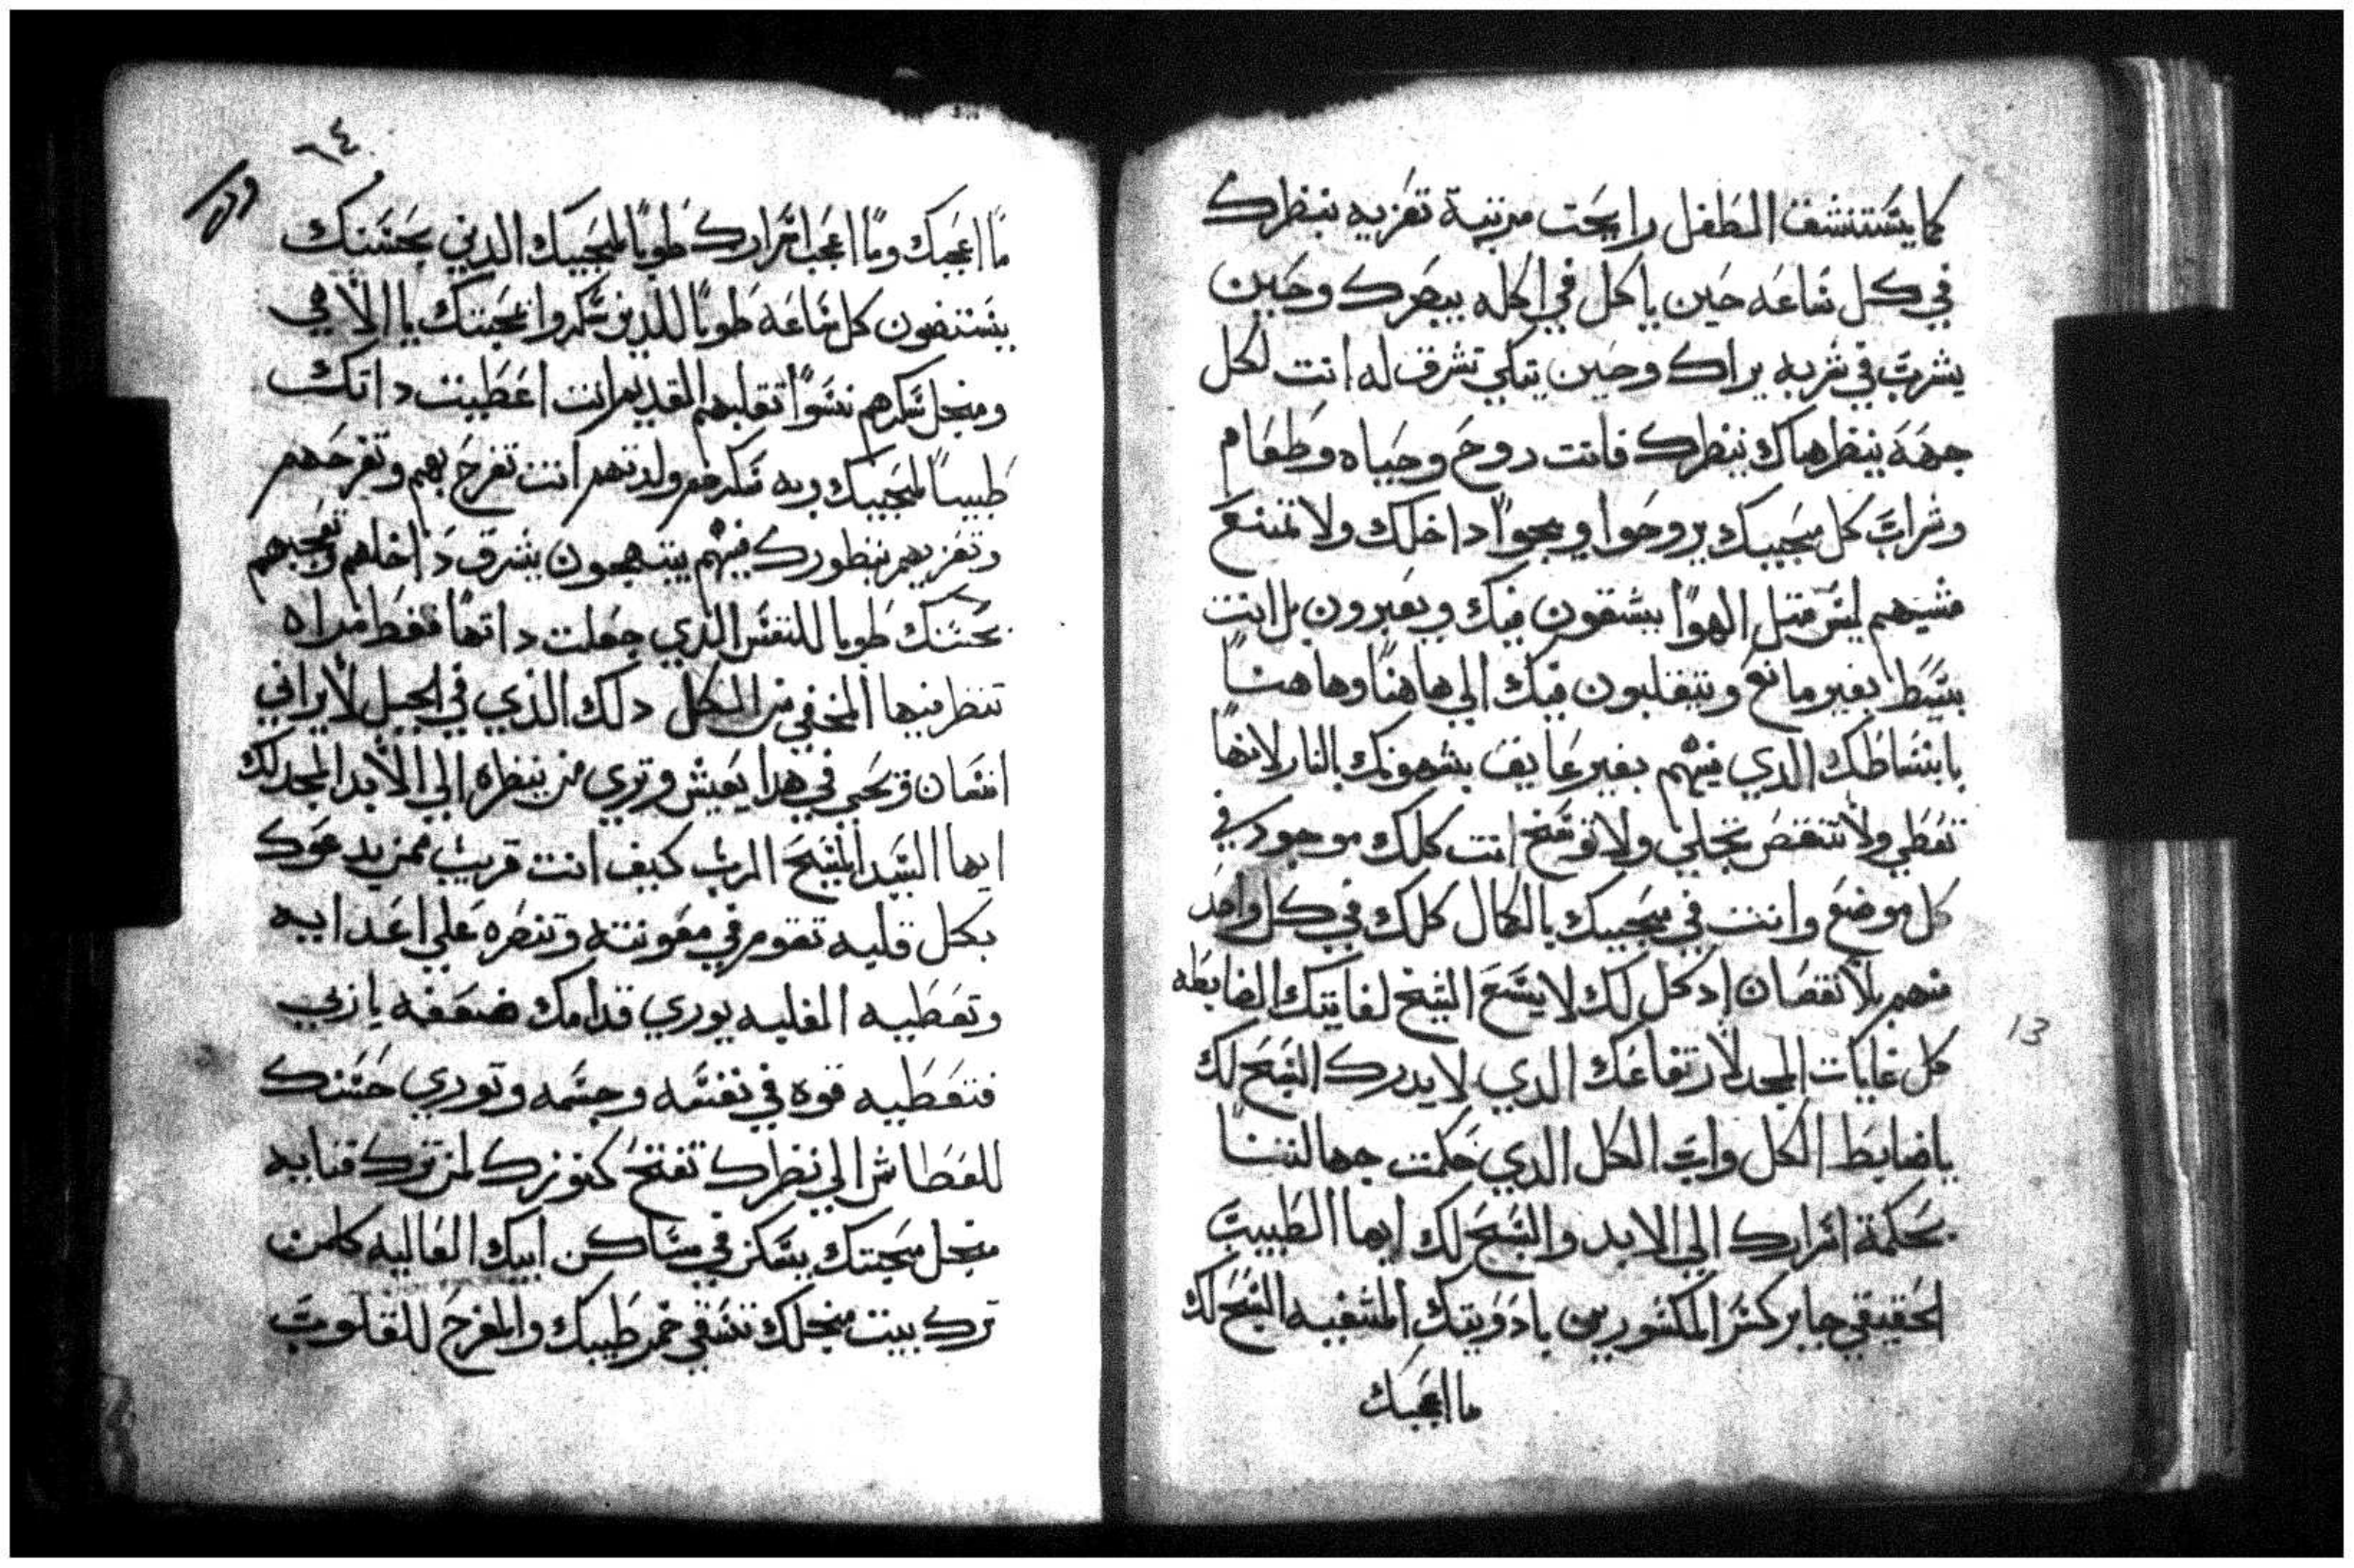 كما يستنشق الطفل رايحت مربيية تعزيه بنظرك
في كل ساعه حين ياكل في اكله يبصرك وحين
يشرب في شربه يراك وحين يبكي تشرق له انت لكل
جهة ينظر هناك ينظرك فانت روح وحياه وطعام
وشراب كل محبيك يروحوا ويجوا داخلك ولا تمنع
مشيهم ليس مثل الهوا يشقون فيك ويعبرون بل انت
بسيط بغير مانع ويتقلبون فيك الي هاهنا وهاهنا
بانبساطك الدي فيهم بغير عايق يشبهونك بالنار لانها
تعطي ولا تنقص تجلي ولا توسخ انت كلك موجود في
كل موضع وانت في محبيك بالكمال كلك في كل واحد
منهم بلا نقصان اد كل لك لا يسع السبح لغايتك الضابطه
كل غايات المجد لارتفاعك الدي لا يدرك السبح لك
يا ضابط الكل واب الكل الدي حكمت جهالتنا
بحكمة اسرارك الي الابد والسبح لك ايها الطبيب
الحقيقي جابر كسر المكسورين بادويتك المشفيه السبح لك
ما اعجبك
٦٤
ما اعجبك وما اعجب اسرارك طوبا لمحبيك الدين بحسنك
يستضون كل ساعة طوبا للدين سكروا بمحبتك يا الاهي
ومنجل سكرهم نسوا تقلبهم القديم انت اعطيت داتك
طبيبا لمحبيك وبه سكرهم ولدتهم انت تفرح بهم وتفرحهم
وتعزيهم بنظورك فيهم يبتهجون بشرق داخلهم وتعجبهم
بحسنك طوبا للنفس الذي جعلت داتها فقط مراه
تنظر فيها المخفي من الكل دلك الذي في الجبل لا يراني
انسان ويحيي في هدا يعيش وتري من ينظره الي الابد المجد لك
ايها السيد المسيح الرب كيف انت قريب ممن يدعوك
بكل قلبه تقوم في معونته وتنظره علي اعدايه
وتعطيه الغلبه يوري قدامك ضعفه يا ربي
فتعطيه قوه في نفسه وجسمه وتوري حسنك
للعطاش الي نظرك تفتح كنوزك لمن ترك قنايه
منجل محبتك يسكن في مساكن ابيك العاليه كلمن
ترك بيت منجلك تسقي خمر طيبك والمفرح للقلوب
13